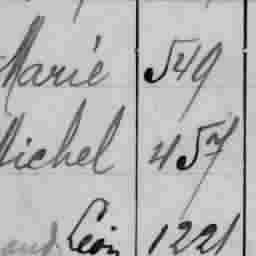 Marié 549
Michel 457
Léon 1221